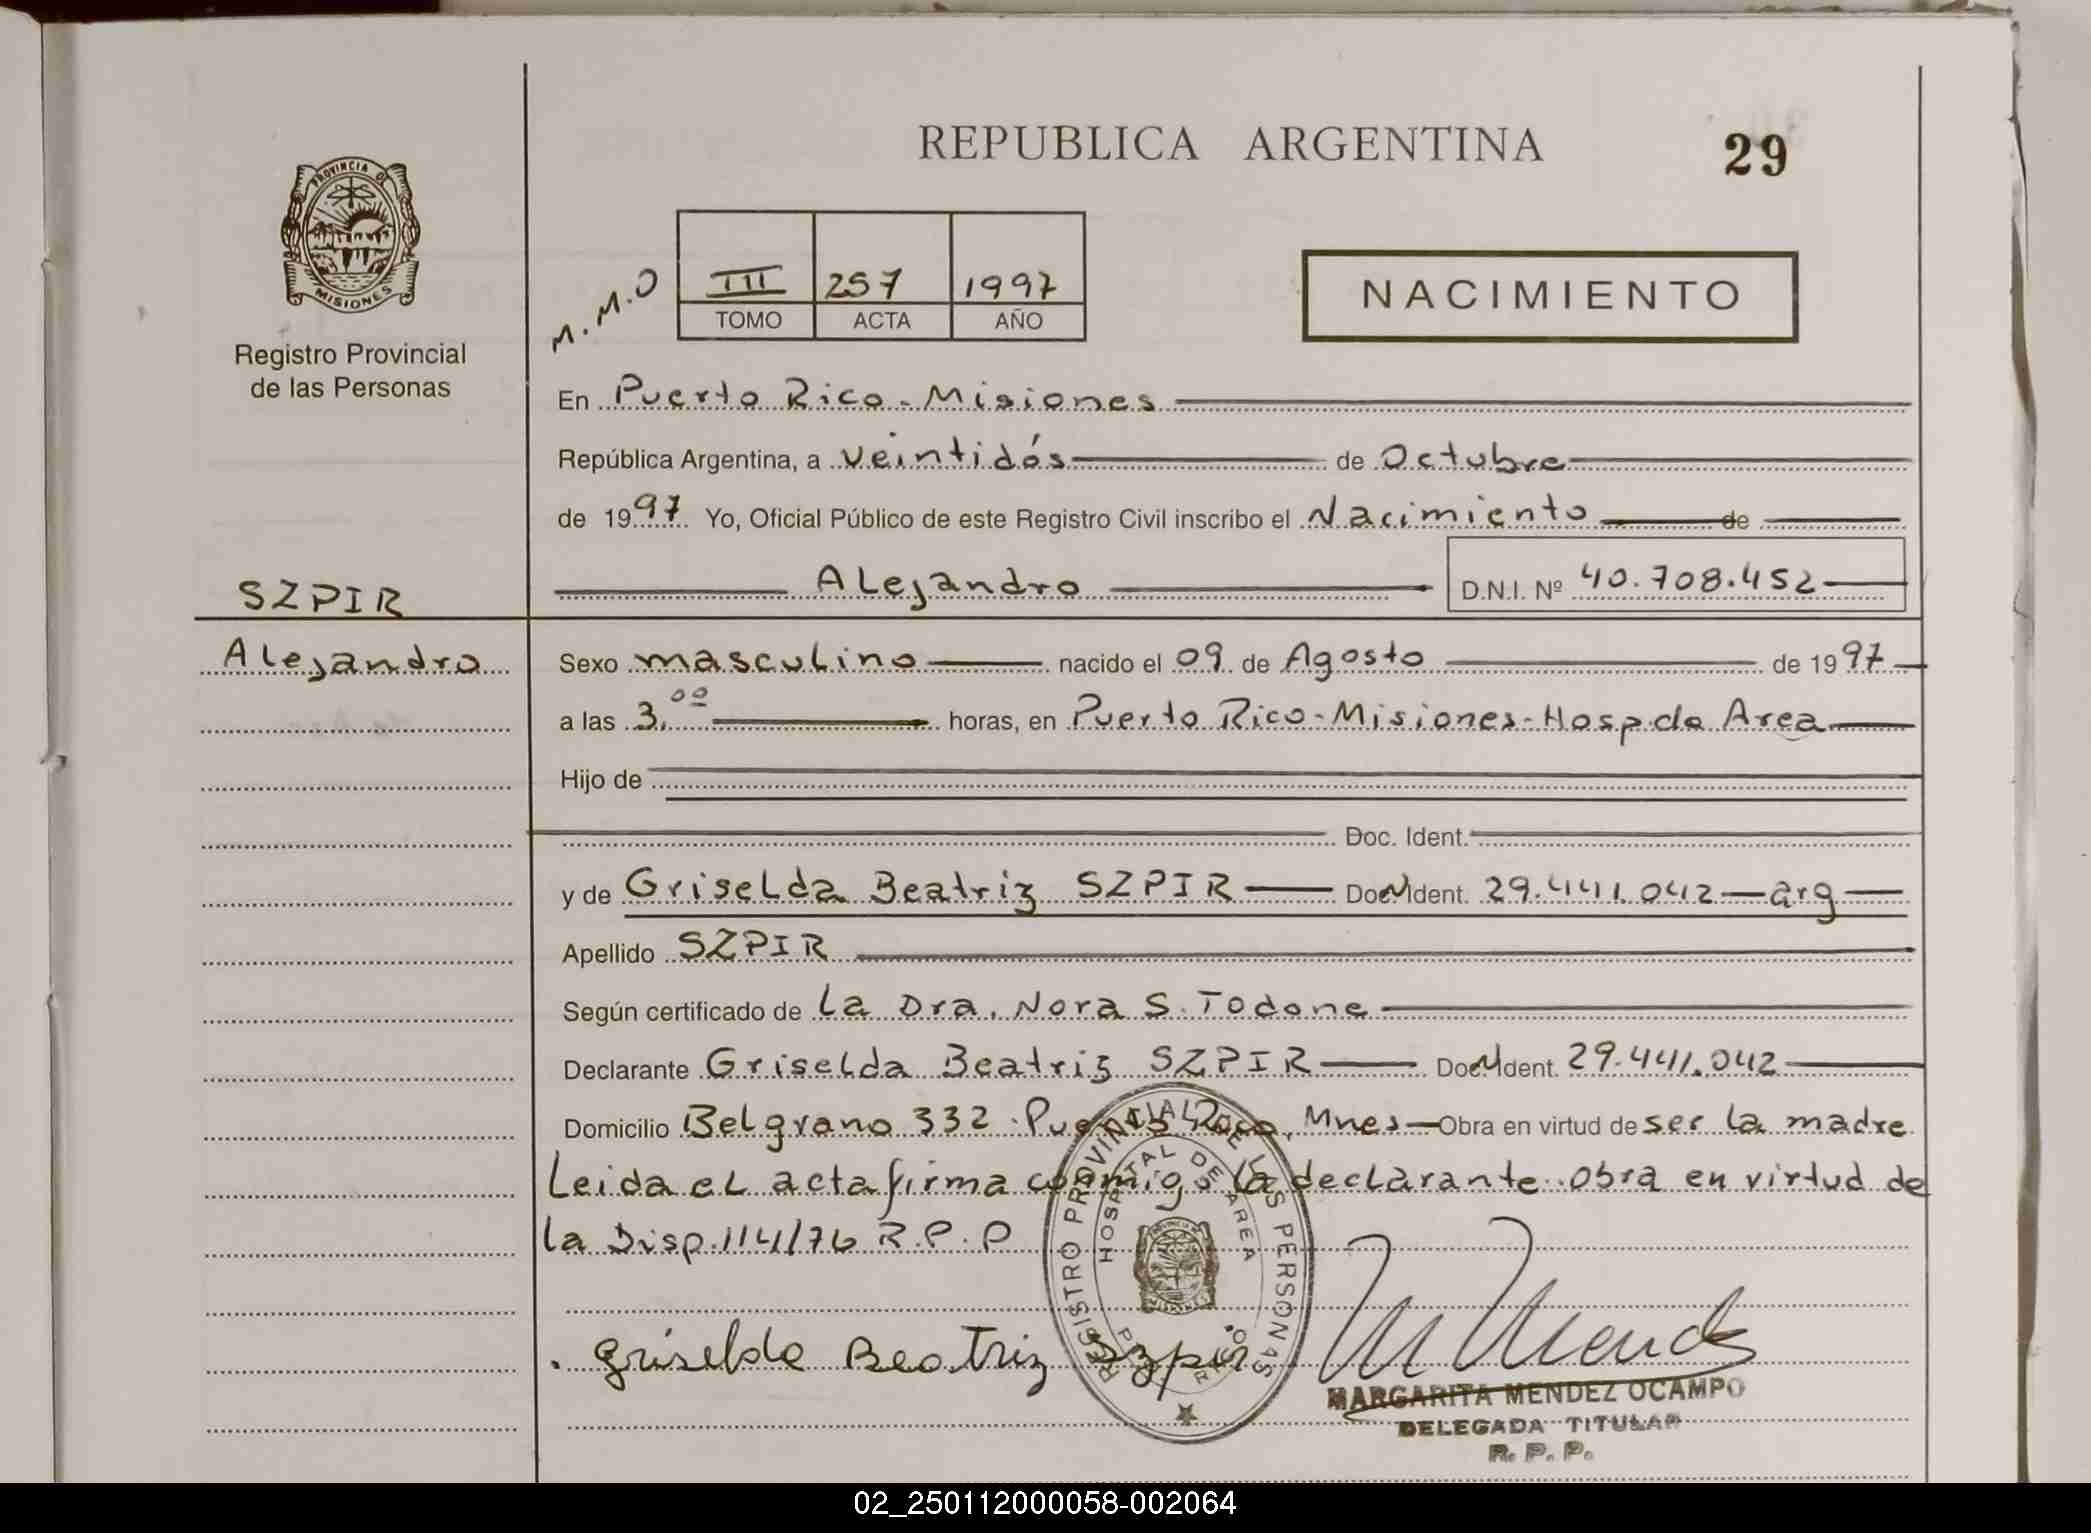 REPUBLICA ARGENTINA
29
PROVINCIA DE
MISIONES
Registro Provincial
de las Personas
M.M.O
III 257 1997
TOMO ACTA AÑO
NACIMIENTO
En Puerto Rico - Misiones
República Argentina, a veintidós de Octubre
de 1997 Yo, Oficial Público de este Registro Civil inscribo el Nacimiento de
Alejandro D.N.I. Nº 40.708.452
SZPIR
Alejandro
Sexo masculino nacido el 09 de Agosto de 1997
a las 3,00 horas, en Puerto Rico - Misiones - Hosp. de Area
Hijo de
Doc. Ident.
y de Griselda Beatriz SZPIR Doc. Ident. 29.441.042 - arg
Apellido SZPIR
Según certificado de La Dra. Nora S. Todone
Declarante Griselda Beatriz SZPIR Doc. Ident. 29.441.042
Domicilio Belgrano 332 - Puerto Rico, Mnes - Obra en virtud de ser la madre
Leida el acta firma conmigo la declarante. Obra en virtud de
la Disp. 114/76 R.P.P
REGISTRO PROVINCIAL DE LAS PERSONAS
HOSPITAL DE AREA
PTO. RICO
Griselda Beatriz Szpir
M Mendez
MARGARITA MENDEZ OCAMPO
DELEGADA TITULAR
R. P. P.
02_250112000058-002064